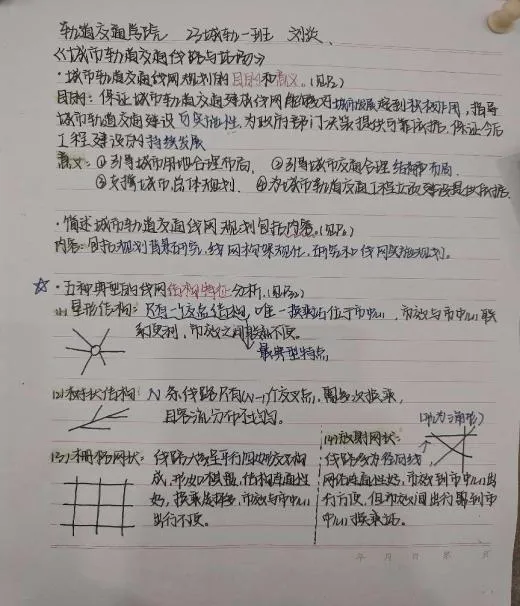 轨道交通学院 23城轨一班 刘炎
《城市轨道交通线路与站场》
·城市轨道交通线网规划的目的和意义。(见P2)
目的：保证城市轨道交通建成线网能够对城市发展起到积极作用，指导
城市轨道交通建设可实施性，为政府部门决策提供可靠依据。保证今后
工程建设的持续发展
意义：①引导城市用地合理布局。②引导城市交通合理结构布局.
③支撑城市总体规划. ④为城市轨道交通工程立项建设提供依据.
·简述城市轨道交通线网规划包括内容。(见P6)
内容：包括规划背景研究、线网构架规化、研究和线网实施规划。
☆·五种典型的线网结构特征分析.(见P32)
(1)星形结构：只有一个交点结构，唯一换乘站位于市中心，市效与市中心联
系便利，市效之间联系不便。
最典型特点
(2)树状结构：N条线路只有(N-1)个交叉点，需多次换乘，
且客流分布不均匀。
(3)栅格网状：线路大多呈平行四边形交叉构
成，形如棋盘，结构连通性
好，换乘选择多，市效与市中心
出行不便。
(形为三角形)
(4)放射网状：
线路多为径向线，
网络连通性好，市效到市中心出
行方便，但市效间出行需到市
中心换乘站。
年 月 日 第 页